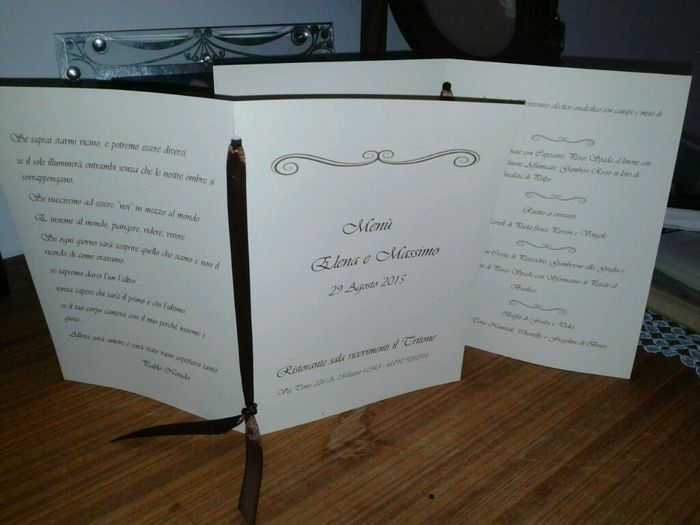 Se saprai starmi vicino, e potremo essere diversi,
se il sole illuminerà entrambi senza che le nostre ombre si
sovrappongano,
Se riusciremo ad essere "noi" in mezzo al mondo
E, insieme al mondo, piangere, ridere, vivere.
Se ogni giorno sarà scoprire quello che siamo e non il
ricordo di come eravamo,
se sapremo darci l'un l'altro
senza sapere chi sarà il primo e chi l'ultimo,
se il tuo corpo canterà con il mio perché insieme è
gioia...
Allora sarà amore e sarà stato vano aspettarsi tanto
Pablo Neruda
Menù
Elena e Massimo
29 Agosto 2015
Ristorante sala ricevimenti il Tritone
Via Tono, A. Milazzo (Me)
alcolico analcolico con canapè e misto di
con Capesante Pesce Spada al limone con
Affumicato Gambero Rosso in letto di
Insalata di Polpo
Risotto ai crostacei,
Ravioli di Pasta fresca Porcini e Vongole
in Crosta di Pistacchio, Gamberone alla Griglia e
di Pesce Spada con Sformatino di Patate al
Basilico
Buffet di Frutta e Dolci
Torta Nuziale Chantilly e Fragoline di Bosco